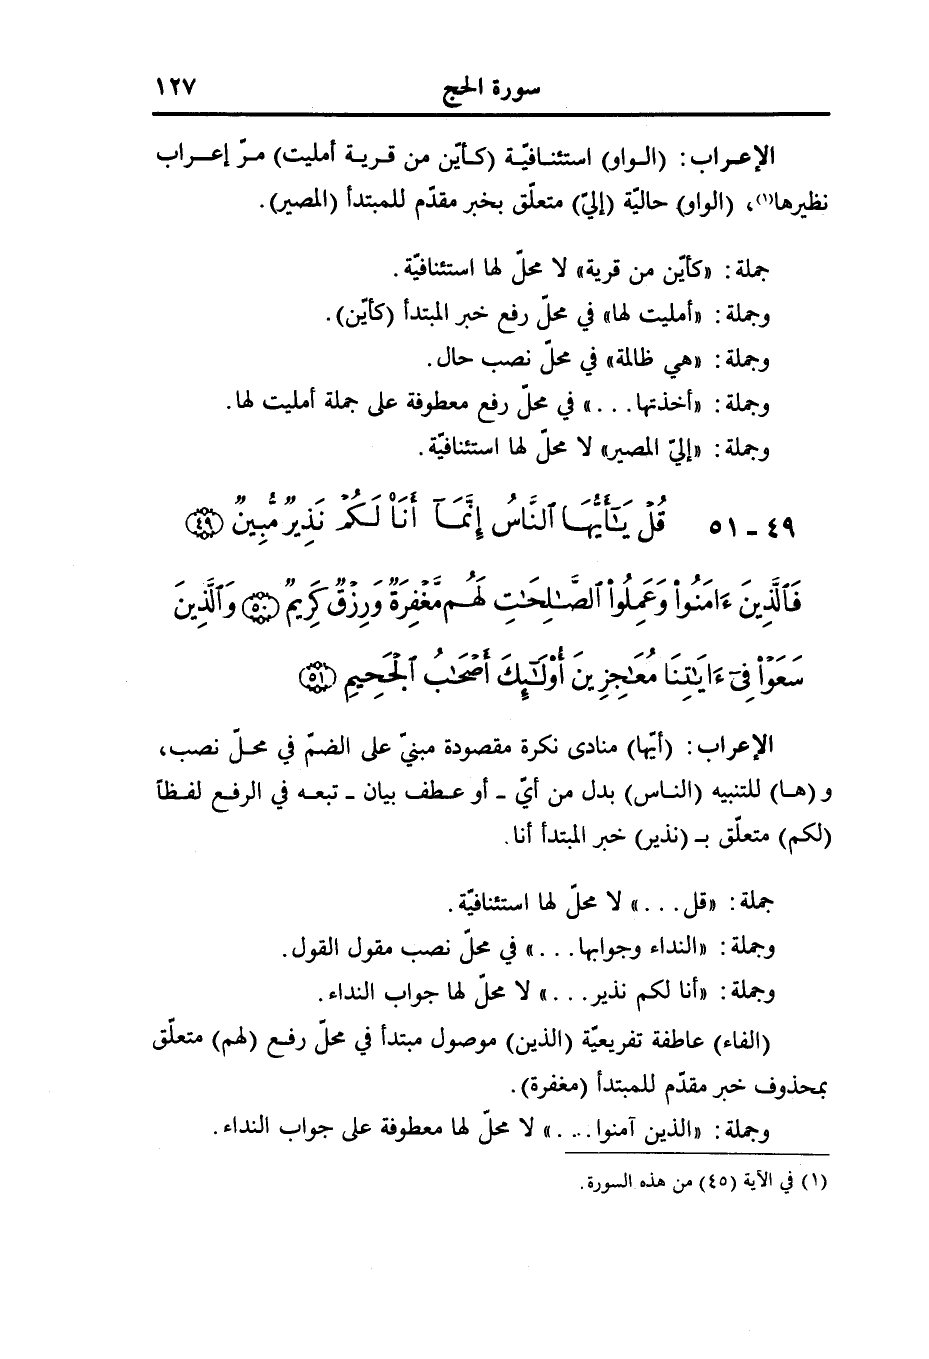 سورة الحج ١٢٧
الإعراب: (الواو) استئنافيّة (كأيّن من قرية أمليت) مرّ إعراب
نظيرها(١)، (الواو) حاليّة (إليّ) متعلّق بخبر مقدّم للمبتدأ (المصير).
جملة: «كأيّن من قرية» لا محلّ لها استئنافيّة.
وجملة: «أمليت لها» في محلّ رفع خبر المبتدأ (كأيّن).
وجملة: «هي ظالمة» في محلّ نصب حال.
وجملة: «أخذتها...» في محلّ رفع معطوفة على جملة أمليت لها.
وجملة: «إليّ المصير» لا محلّ لها استئنافيّة.
٤٩ - ٥١ قُلْ يَٰٓأَيُّهَا ٱلنَّاسُ إِنَّمَآ أَنَا۠ لَكُمْ نَذِيرٌ مُّبِينٌ ﴿٤٩﴾
فَٱلَّذِينَ ءَامَنُوا۟ وَعَمِلُوا۟ ٱلصَّٰلِحَٰتِ لَهُم مَّغْفِرَةٌ وَرِزْقٌ كَرِيمٌ ﴿٥٠﴾ وَٱلَّذِينَ
سَعَوْا۟ فِىٓ ءَايَٰتِنَا مُعَٰجِزِينَ أُو۟لَٰٓئِكَ أَصْحَٰبُ ٱلْجَحِيمِ ﴿٥١﴾
الإعراب: (أيّها) منادى نكرة مقصودة مبنيّ على الضمّ في محلّ نصب،
و(ها) للتنبيه (الناس) بدل من أيّ - أو عطف بيان - تبعه في الرفع لفظاً
(لكم) متعلّق بـ (نذير) خبر المبتدأ أنا.
جملة: «قل...» لا محلّ لها استئنافيّة.
وجملة: «النداء وجوابها...» في محلّ نصب مقول القول.
وجملة: «أنا لكم نذير...» لا محلّ لها جواب النداء.
(الفاء) عاطفة تفريعيّة (الذين) موصول مبتدأ في محلّ رفع (لهم) متعلّق
بمحذوف خبر مقدّم للمبتدأ (مغفرة).
وجملة: «الذين آمنوا....» لا محلّ لها معطوفة على جواب النداء.
(١) في الآية (٤٥) من هذه السورة.